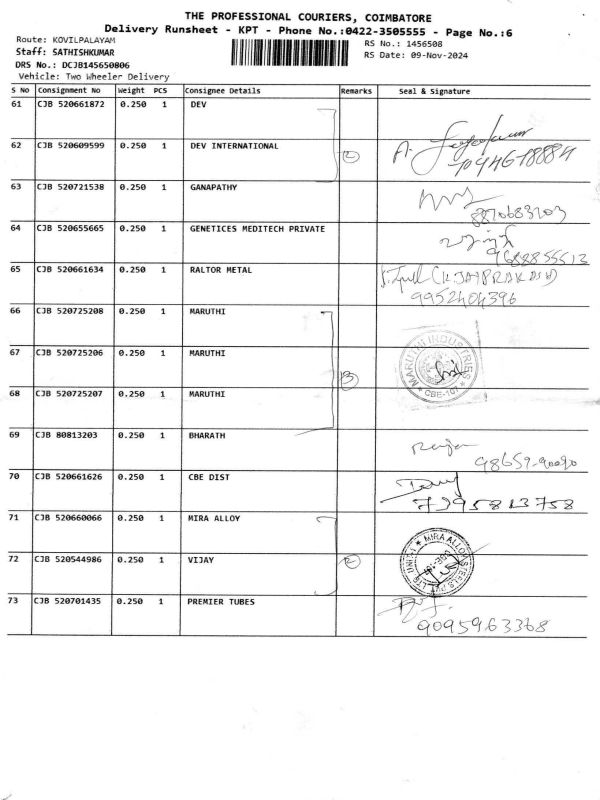 THE PROFESSIONAL COURIERS, COIMBATORE
Delivery Runsheet - KPT - Phone No.:0422-3505555 - Page No.:6
Route: KOVILPALAYAM
RS No.: 1456508
Staff: SATHISHKUMAR
RS Date: 09-Nov-2024
DRS No.: DCJB145650806
Vehicle: Two Wheeler Delivery
S No Consignment No Weight PCS Consignee Details Remarks Seal & Signature
61 CJB 520661872 0.250 1 DEV
62 CJB 520609599 0.250 1 DEV INTERNATIONAL 2 A.
63 CJB 520721538 0.250 1 GANAPATHY
8870683203
64 CJB 520655665 0.250 1 GENETICES MEDITECH PRIVATE
9688855513
65 CJB 520661634 0.250 1 RALTOR METAL (K.JAIPRAKASH)
9952404396
66 CJB 520725208 0.250 1 MARUTHI
67 CJB 520725206 0.250 1 MARUTHI 3 MARUTHI INDUSTRIES * CBE-107 *
68 CJB 520725207 0.250 1 MARUTHI
69 CJB 80813203 0.250 1 BHARATH
98659-90090
70 CJB 520661626 0.250 1 CBE DIST
7395813758
71 CJB 520660066 0.250 1 MIRA ALLOY
72 CJB 520544986 0.250 1 VIJAY 2 MIRA ALLOY STEELS
73 CJB 520701435 0.250 1 PREMIER TUBES
9095963368